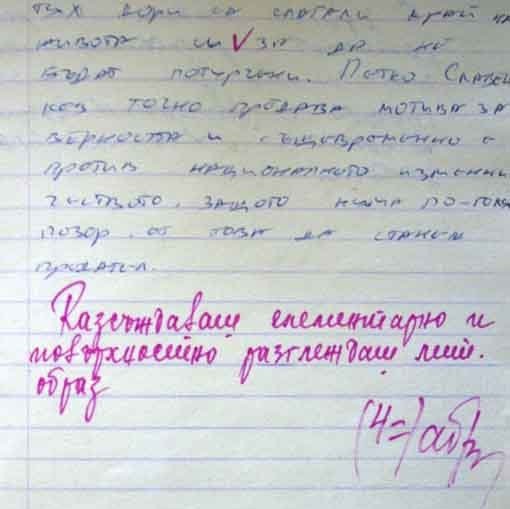 тях дори са слагали край на
живота си за да не
бъдат потурчени. Петко Славей
ков точно предава мотива за
верността и същевременно е
против националното изменни
чеството, защото няма по-голям
позор от това да станеш
предател.
Разсъждаваш елементарно и
повърхностно разглеждаш лит.
образ
(4=)